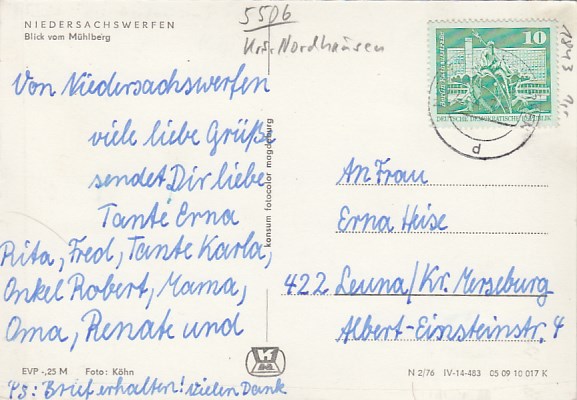 NIEDERSACHSWERFEN
Blick vom Mühlberg
5506
Krs. Nordhausen
Von Niedersachswerfen
viele liebe Grüße
sendet Dir liebe
Tante Erna
Rita, Fred, Tante Karla,
Onkel Robert, Mama,
Oma, Renate und
EVP -,25 M Foto: Köhn
PS: Brief erhalten! vielen Dank
konsum fotocolor magdeburg
10
DEUTSCHE DEMOKRATISCHE REPUBLIK
An Frau
Erna Heise
422 Leuna/Kr. Merseburg
Albert-Einsteinstr. 4
N 2/76 IV-14-483 05 09 10 017 K